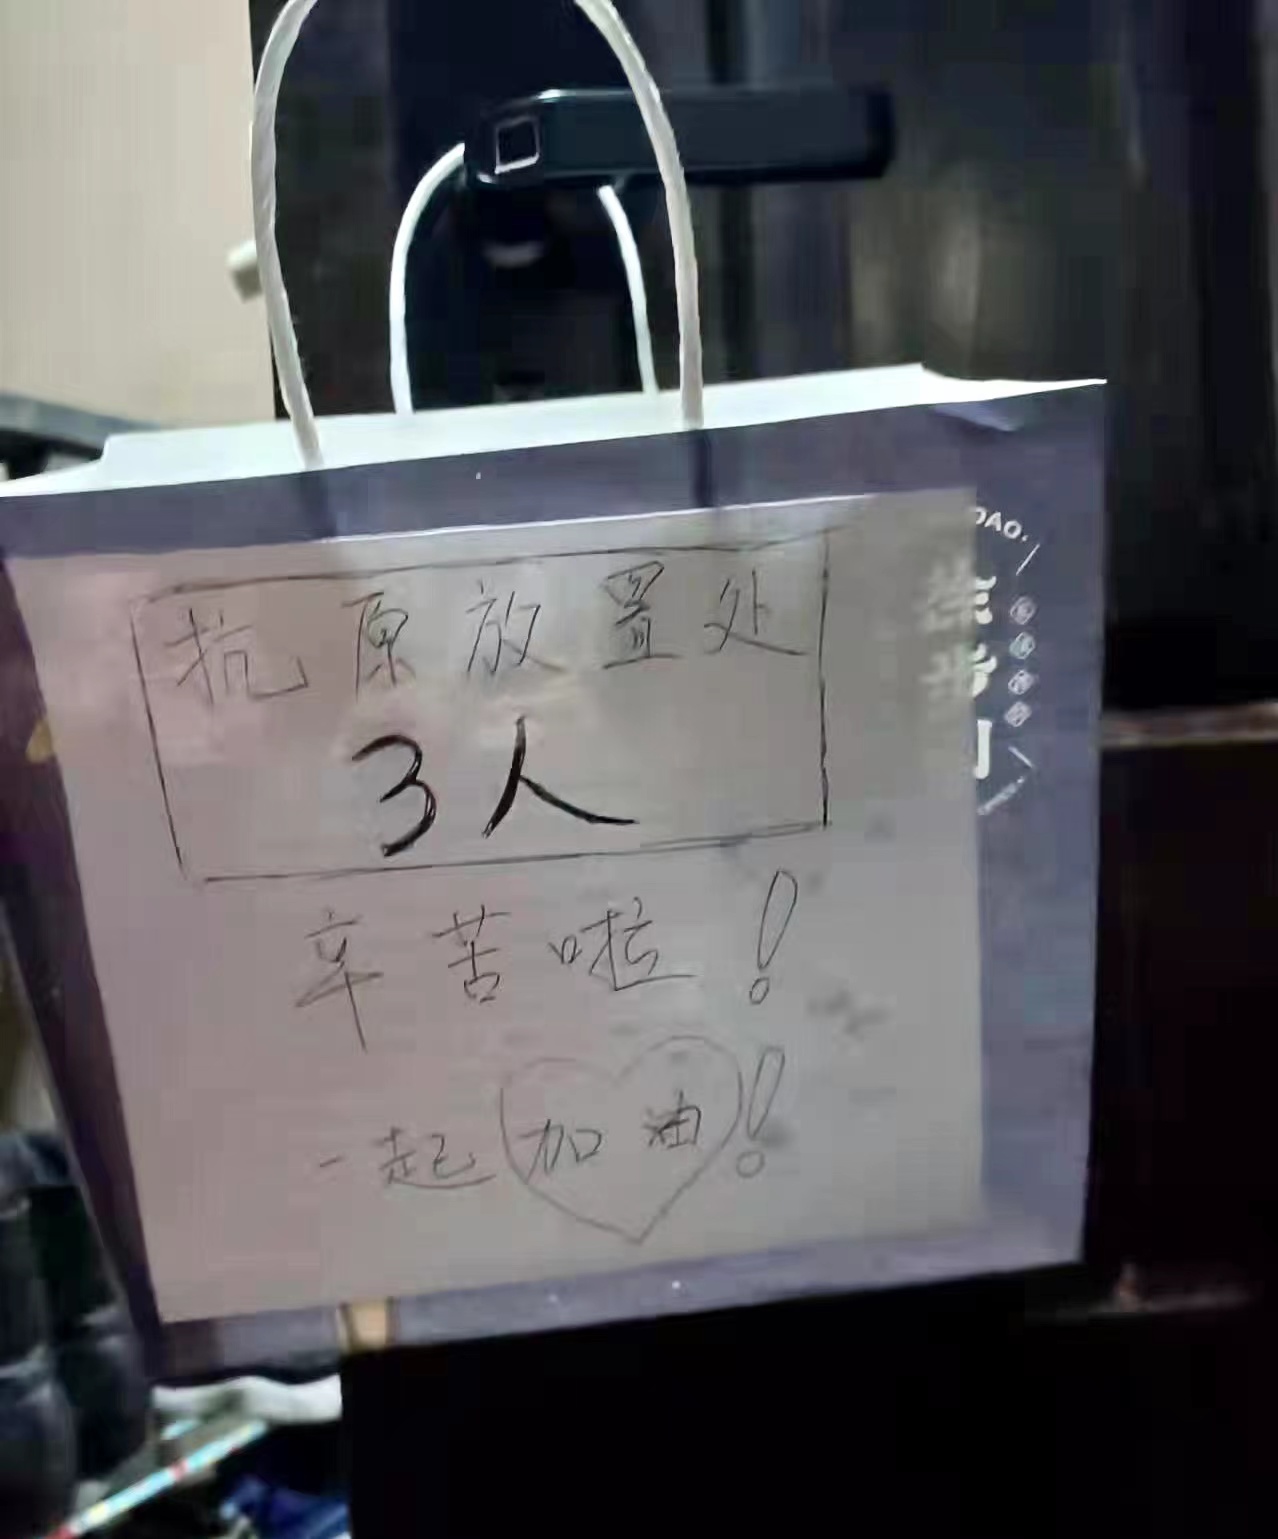 抗原放置处
3人
辛苦啦！
一起加油！
DAO.